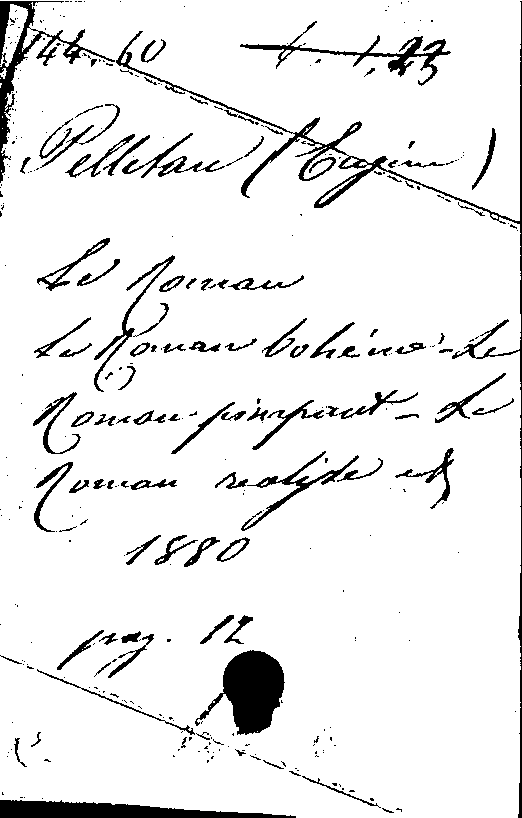 144.60 6.1.23
Pelletan (Eugène)
Le Roman
Le Roman bohême - Le
Roman pimpant - Le
Roman realiste etc
1880
pag. 12